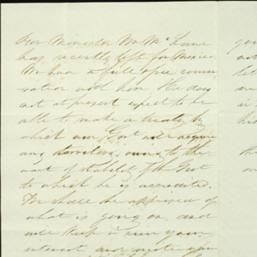 Our Minister Mr McLane
has recently left for Mexico
We had a full & free conver
sation with him. He does
not at present expect to be
able to make a treaty, by
which our Govt will acquire
any territory, owing to the
want of stability of the Govt
to which he is accredited.
We shall be apprised of
what is going on and
will keep in view your
interest and write you